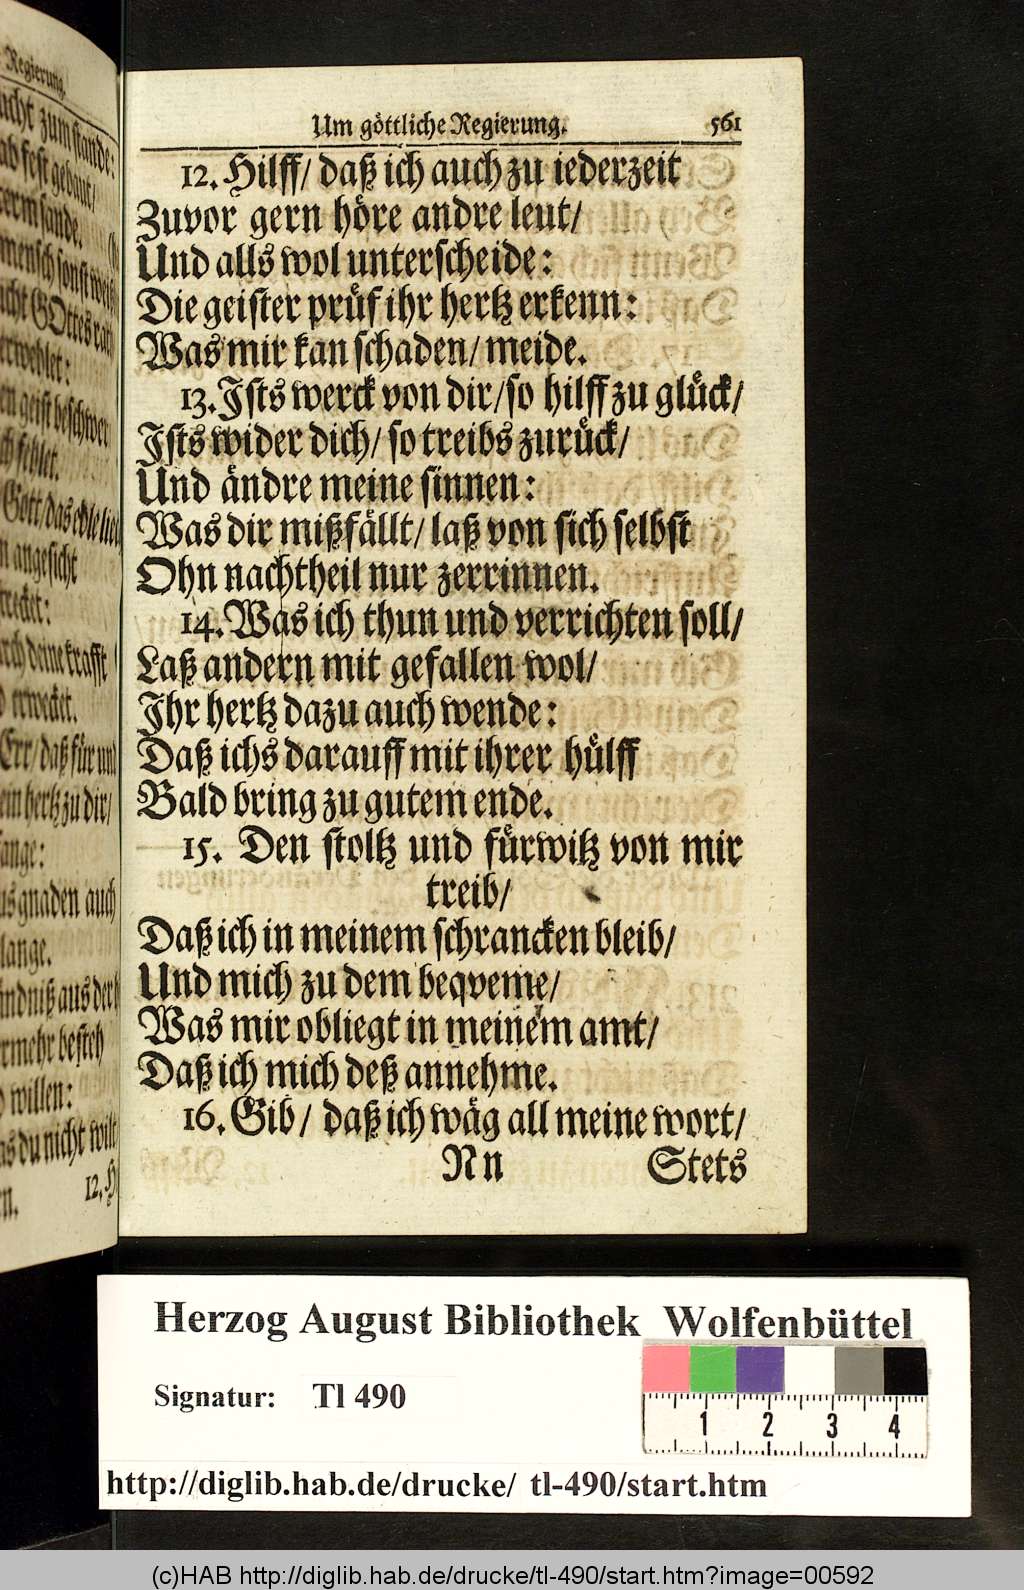 Regierung.
zum stande:
fest gebaut/
sande.
mensch sonst
GOttes
geist
Gott/ das edle
angesicht
deine krafft
erwecket.
daß für und
hertz zu dir/
gnaden auch
lange.
aus der
besteh
willen:
du nicht wilt
12. H
Um göttliche Regierung. 561
12. Hilff/ daß ich auch zu iederzeit
Zuvor gern höre andre leut/
Und alls wol unterscheide:
Die geister prüf ihr hertz erkenn:
Was mir kan schaden/ meide.
13. Ists werck von dir/ so hilff zu glück/
Ists wider dich/ so treibs zurück/
Und ändre meine sinnen:
Was dir mißfällt/ laß von sich selbst
Ohn nachtheil nur zerrinnen.
14. Was ich thun und verrichten soll/
Laß andern mit gefallen wol/
Ihr hertz dazu auch wende:
Daß ichs darauff mit ihrer hülff
Bald bring zu gutem ende.
15. Den stoltz und fürwitz von mir
treib/
Daß ich in meinem schrancken bleib/
Und mich zu dem beqveme/
Was mir obliegt in meinem amt/
Daß ich mich deß annehme.
16. Gib/ daß ich wäg all meine wort/
Nn Stets
Herzog August Bibliothek Wolfenbüttel
Signatur: Tl 490
1 2 3 4
http://diglib.hab.de/drucke/ tl-490/start.htm
(c)HAB http://diglib.hab.de/drucke/tl-490/start.htm?image=00592